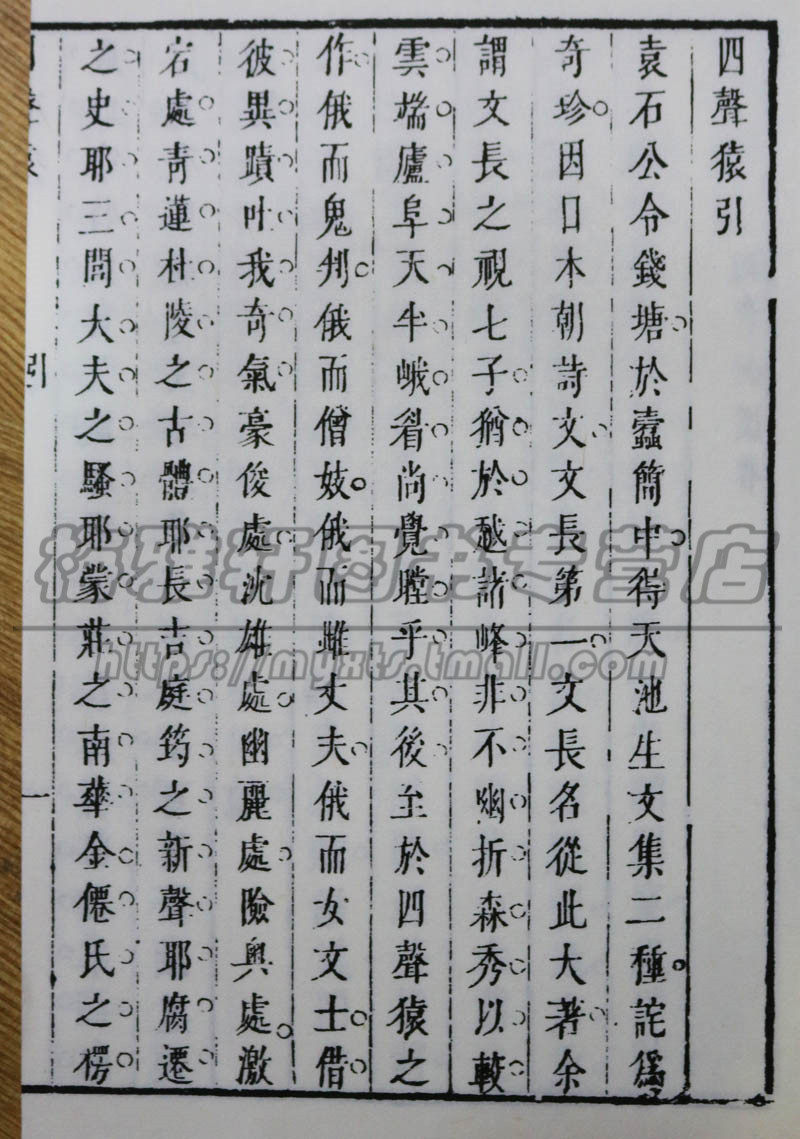 四聲猿引
袁石公令錢塘於蠹簡中得天池生文集二種詫爲
奇珍因曰本朝詩文文長第一文長名從此大著余
謂文長之視七子猶於越諸峰非不幽折森秀以較
雲端廬阜天半峨眉尚覺瞠乎其後至於四聲猿之
作俄而鬼判俄而僧妓俄而雌丈夫俄而女文士借
彼異蹟吐我奇氣豪俊處沈雄處幽麗處險奥處激
宕處青蓮杜陵之古體耶長吉庭筠之新聲耶腐遷
之史耶三閭大夫之騷耶蒙莊之南華金僊氏之楞
引
一
https://myxts.tmall.com